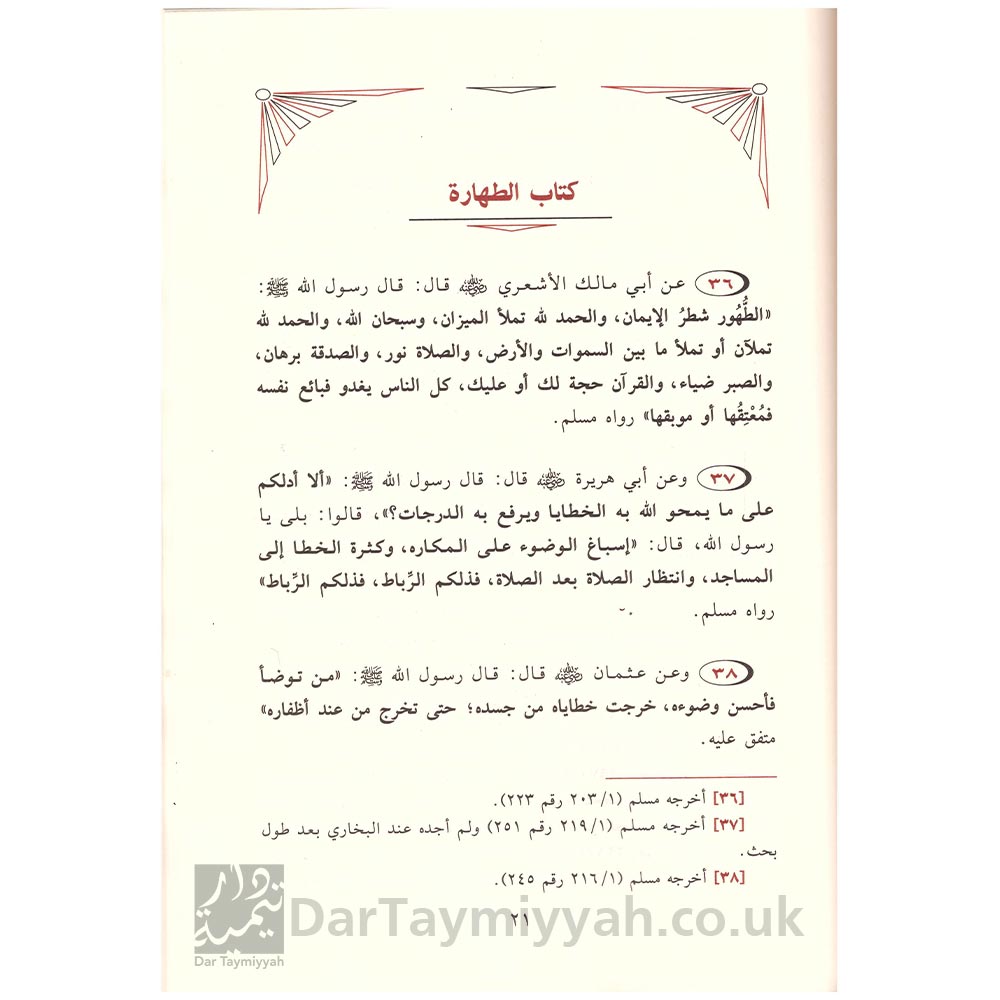 كتاب الطهارة
٣٦ عن أبي مالك الأشعري رضي الله عنه قال: قال رسول الله ﷺ:
«الطُّهُور شطرُ الإيمان، والحمد لله تملأ الميزان، وسبحان الله، والحمد لله
تملآن أو تملأ ما بين السموات والأرض، والصلاة نور، والصدقة برهان،
والصبر ضياء، والقرآن حجة لك أو عليك، كل الناس يغدو فبائع نفسه
فمُعْتِقُها أو موبقها» رواه مسلم.
٣٧ وعن أبي هريرة رضي الله عنه قال: قال رسول الله ﷺ: «ألا أدلكم
على ما يمحو الله به الخطايا ويرفع به الدرجات؟»، قالوا: بلى يا
رسول الله، قال: «إسباغ الوضوء على المكاره، وكثرة الخطا إلى
المساجد، وانتظار الصلاة بعد الصلاة، فذلكم الرِّباط، فذلكم الرِّباط»
رواه مسلم.
٣٨ وعن عثمان رضي الله عنه قال: قال رسول الله ﷺ: «من توضأ
فأحسن وضوءه، خرجت خطاياه من جسده؛ حتى تخرج من عند أظفاره»
متفق عليه.
[٣٦] أخرجه مسلم (٢٠٣/١ رقم ٢٢٣).
[٣٧] أخرجه مسلم (٢١٩/١ رقم ٢٥١) ولم أجده عند البخاري بعد طول
بحث.
[٣٨] أخرجه مسلم (٢١٦/١ رقم ٢٤٥).
٢١
دار تيمية
Dar Taymiyyah
DarTaymiyyah.co.uk